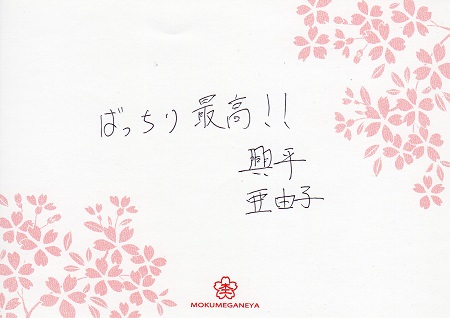 ばっちり最高!!
興平
亜由子
MOKUMEGANEYA